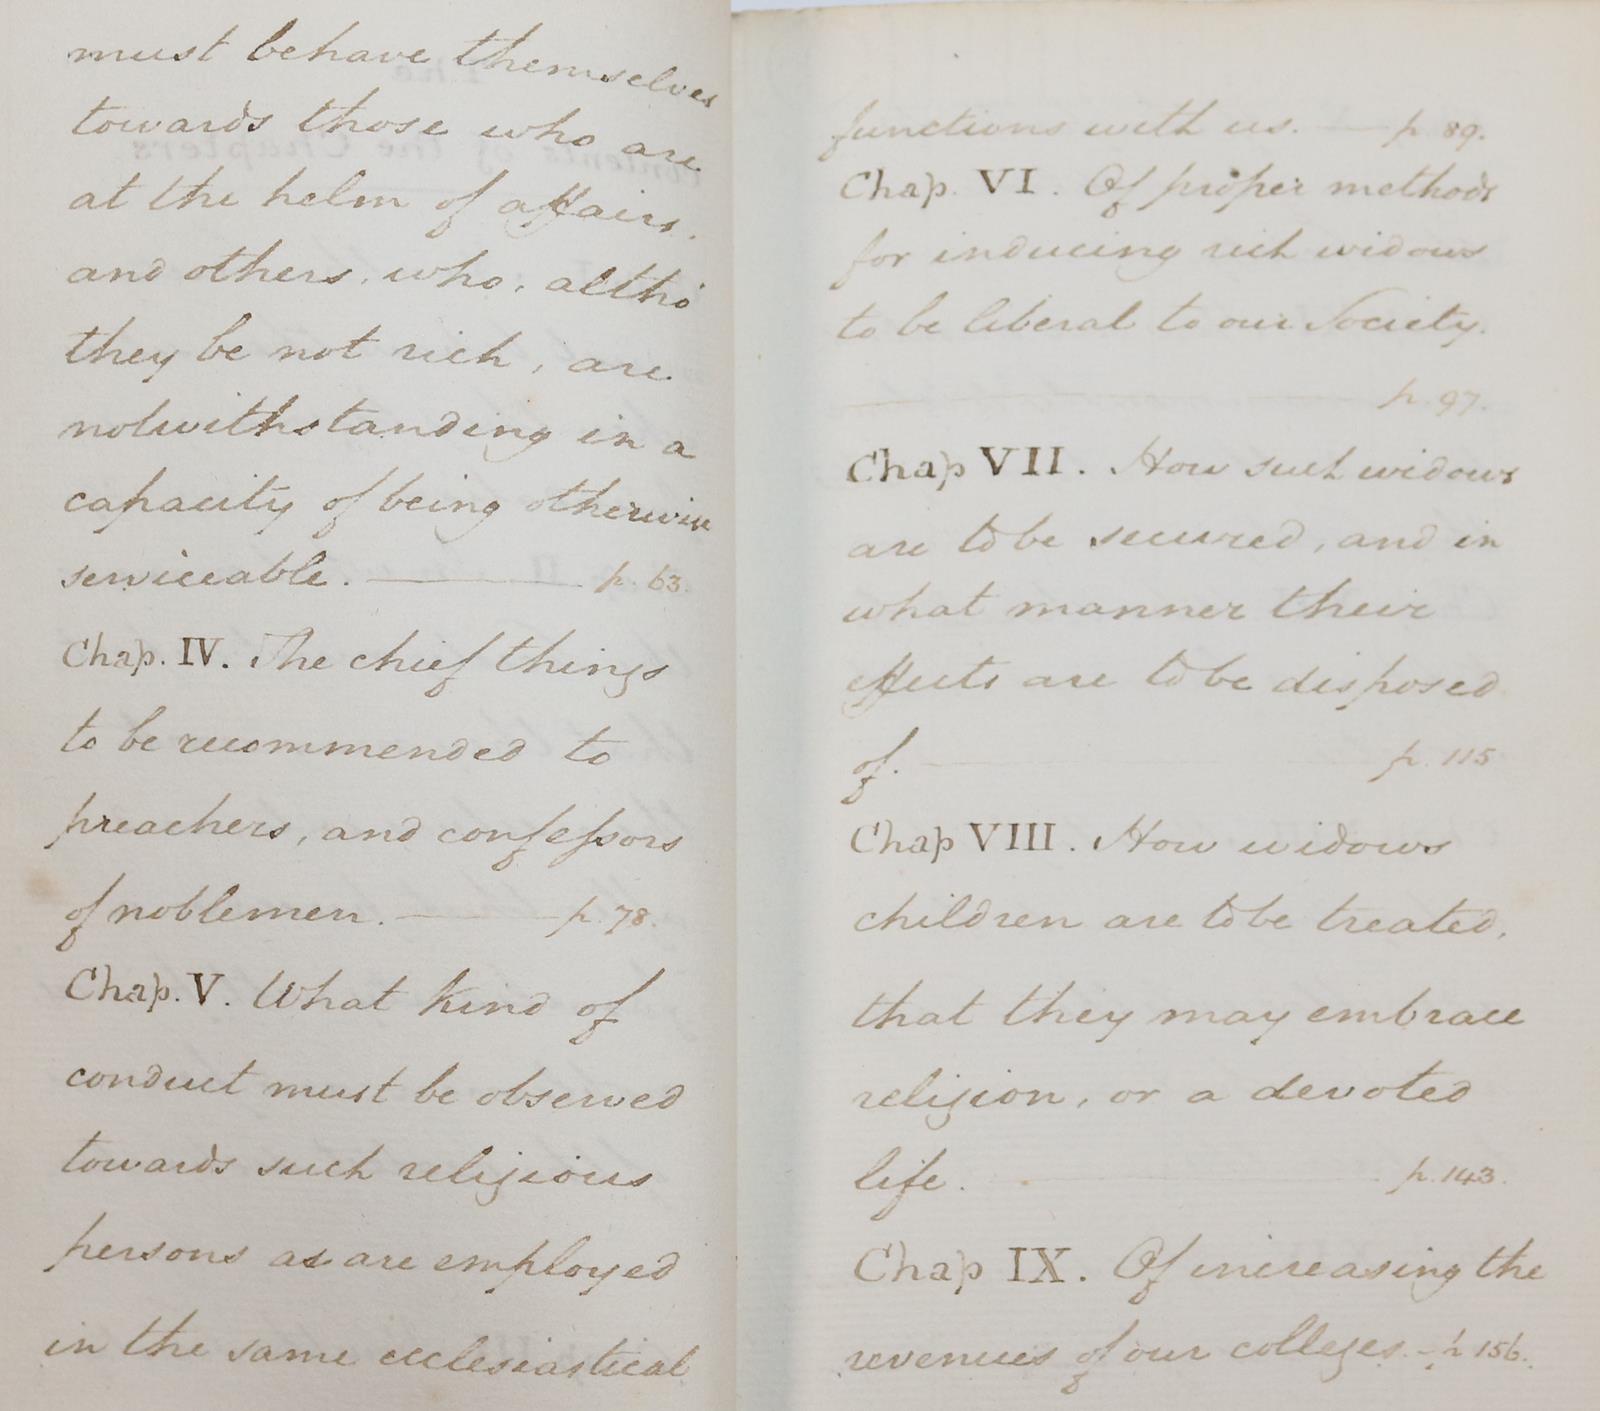 must behave themselves
towards those who are
at the helm of affairs,
and others, who, altho'
they be not rich, are
notwithstanding in a
capacity of being otherwise
serviceable. — p. 63.
Chap. IV. The chief things
to be recommended to
preachers, and confessors
of noblemen. — p. 78.
Chap. V. What kind of
conduct must be observed
towards such religious
persons as are employed
in the same ecclesiastical
functions with us. — p. 89.
Chap. VI. Of proper methods
for inducing rich widows
to be liberal to our Society.
— p. 97.
Chap VII. How such widows
are to be secured, and in
what manner their
effects are to be disposed
of. — p. 115
Chap VIII. How widows
children are to be treated,
that they may embrace
religion, or a devoted
life. — p. 143.
Chap IX. Of increasing the
revenues of our colleges. — p. 156.